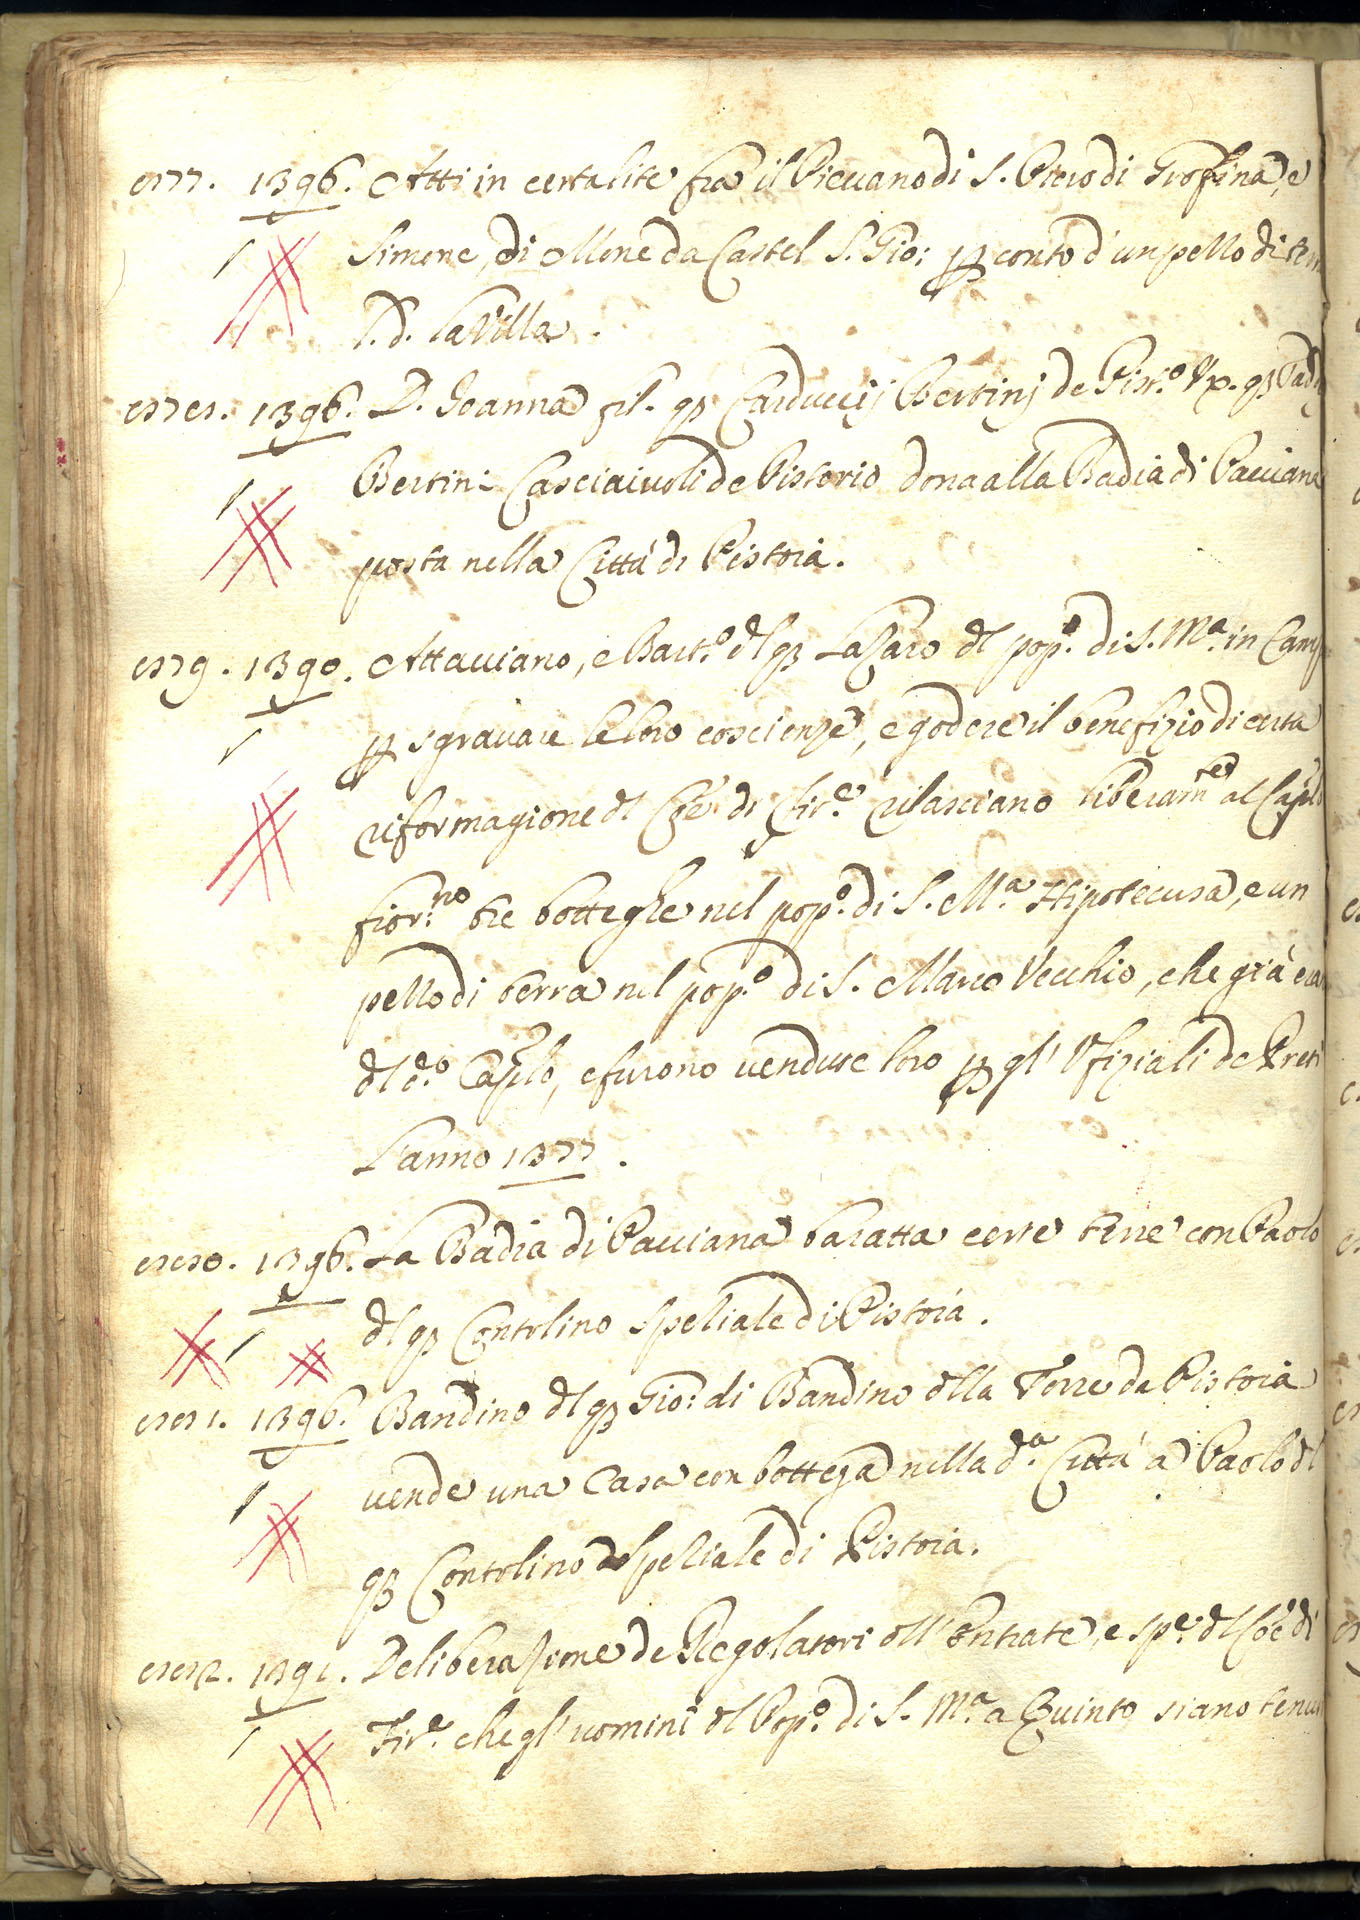 877. 1396. Atti in certa lite fra il Pievano di S. Piero di Groppina, e
Simone di Mone da Castel S. Gio: p conto d'un pezzo di terr
l. d. la Villa.
878. 1396. D. Joanna fil. qp Carduccij Bertinj de Pist.o Vx. qp Tad
Bertini Casciaiuoli de Pistorio dona alla Badia di Pacciana
posta nella Città di Pistoia.
879. 1390. Attaviano, e Bart.o dl qp Lazaro dl pop.o di S. M.a in Camp
p sgravare le loro coscienze, e godere il benefizio di certa
riformagione dl Coe di Fir.e rilasciano liberam.te al Caplo
fior.no tre botteghe nel pop.o di S. M.a Hipotecusa, e un
pezzo di terra nel pop.o di S. Marco Vecchio, che già era
dl d.o Caplo, e furono vendute loro p gl' Vfiziali de Preti
l'anno 1377.
880. 1396. La Badia di Pacciana baratta certe terre con Paolo
dl qp Contolino Speziale di Pistoia.
881. 1396. Bandino dl qp Gio: di Bandino dlla Torre da Pistoia
vende una Casa con bottega nella d.a Città a Paolo dl
qp Contolino Speziale di Pistoia.
882. 1391. Deliberazione de Regolatori dll' Entrate, e spe: dl Coe di
Fir.e che gl' uomini dl Pop.o di S. M.a a Quinto siano tenut